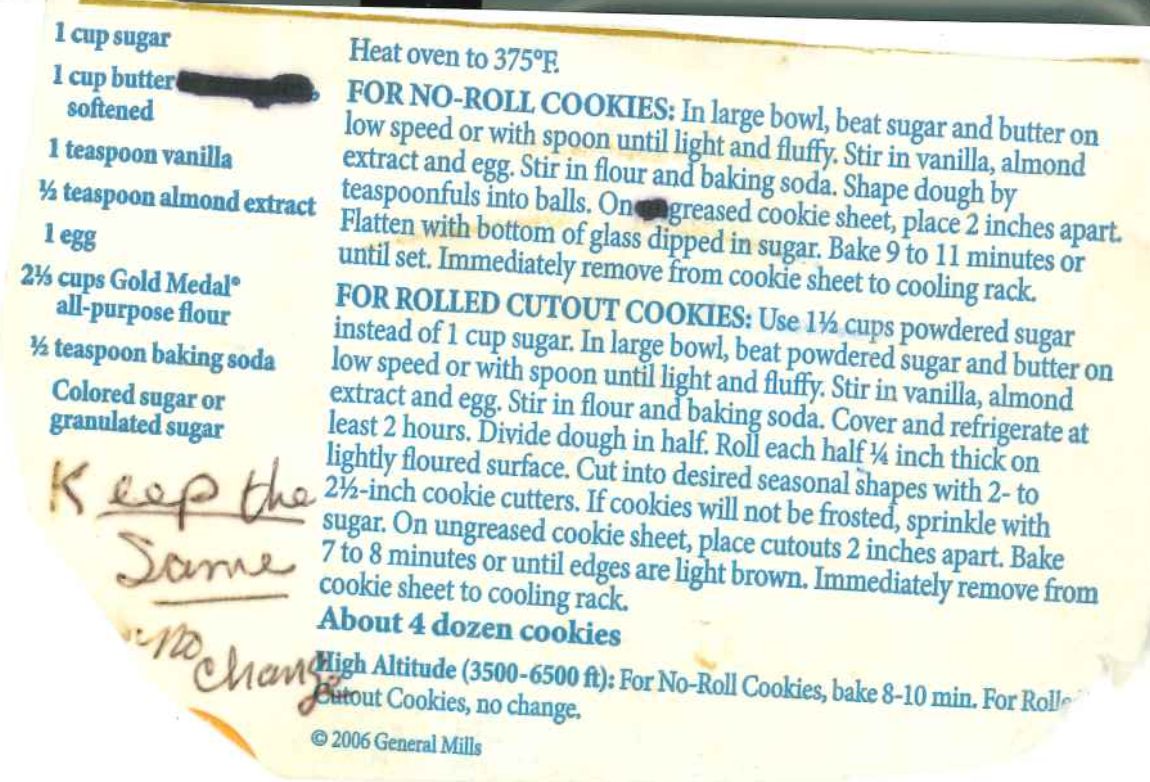 1 cup sugar
1 cup butter
softened
1 teaspoon vanilla
½ teaspoon almond extract
1 egg
2⅓ cups Gold Medal®
all-purpose flour
½ teaspoon baking soda
Colored sugar or
granulated sugar
Keep the
Same
no
change
Heat oven to 375°F.
FOR NO-ROLL COOKIES: In large bowl, beat sugar and butter on
low speed or with spoon until light and fluffy. Stir in vanilla, almond
extract and egg. Stir in flour and baking soda. Shape dough by
teaspoonfuls into balls. On greased cookie sheet, place 2 inches apart.
Flatten with bottom of glass dipped in sugar. Bake 9 to 11 minutes or
until set. Immediately remove from cookie sheet to cooling rack.
FOR ROLLED CUTOUT COOKIES: Use 1½ cups powdered sugar
instead of 1 cup sugar. In large bowl, beat powdered sugar and butter on
low speed or with spoon until light and fluffy. Stir in vanilla, almond
extract and egg. Stir in flour and baking soda. Cover and refrigerate at
least 2 hours. Divide dough in half. Roll each half ¼ inch thick on
lightly floured surface. Cut into desired seasonal shapes with 2- to
2½-inch cookie cutters. If cookies will not be frosted, sprinkle with
sugar. On ungreased cookie sheet, place cutouts 2 inches apart. Bake
7 to 8 minutes or until edges are light brown. Immediately remove from
cookie sheet to cooling rack.
About 4 dozen cookies
High Altitude (3500-6500 ft): For No-Roll Cookies, bake 8-10 min. For Rolle
Cutout Cookies, no change.
© 2006 General Mills